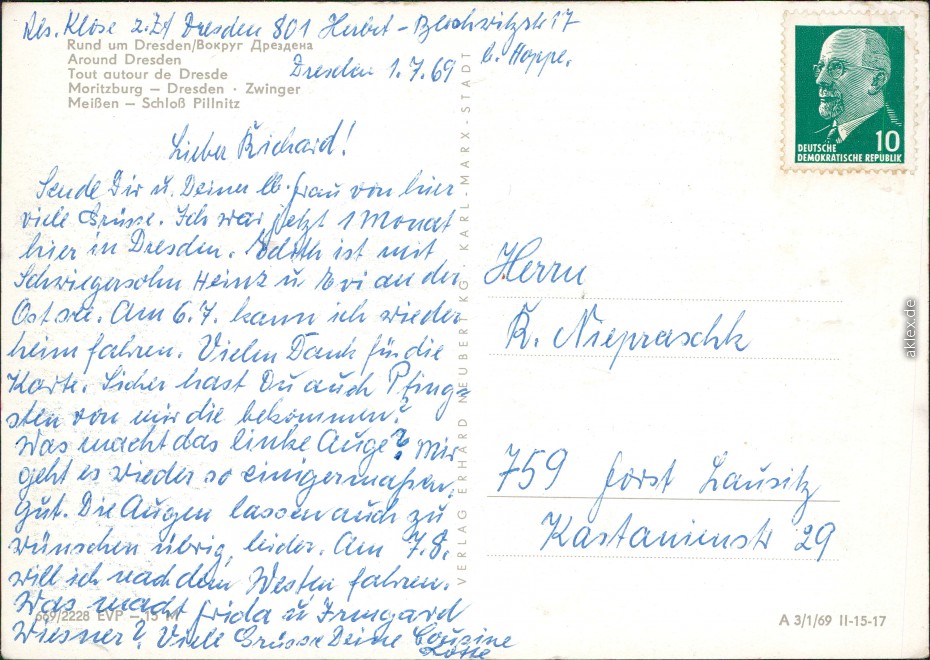 Abs. Klose z.Zt Dresden 801 Herbert-Blochwitzstr 17
b. Hoppe.
Rund um Dresden/Вокруг Дрездена
Around Dresden
Tout autour de Dresde
Moritzburg – Dresden · Zwinger
Meißen – Schloß Pillnitz
Dresden 1.7.69
Lieber Richard!
Sende Dir u. Deiner lb. Frau von hier
viele Grüsse. Ich war jetzt 1 Monat
hier in Dresden. Edith ist mit
Schwiegersohn Heinz u Evi an der
Ostsee. Am 6.7. kann ich wieder
heim fahren. Vielen Dank für die
Karte. Sicher hast Du auch Pfing=
sten von mir die bekommen?
Was macht das linke Auge? Mir
geht es wieder so einigermaßen.
Gut. Die Augen lassen auch zu
wünschen übrig, leider. Am 7.8.
will ich nach dem Westen fahren.
Was macht Frida u Irmgard
Wiesner? Viele Grüsse Deine Cousine
Lotte
669/2228 EVP – 15 M
VERLAG GERHARD NEUBERT KG · KARL-MARX-STADT
10
DEUTSCHE
DEMOKRATISCHE REPUBLIK
Herrn
R. Niepraschk
759 Forst Lausitz
Kastanienstr 29
A 3/1/69 II-15-17
aklex.de